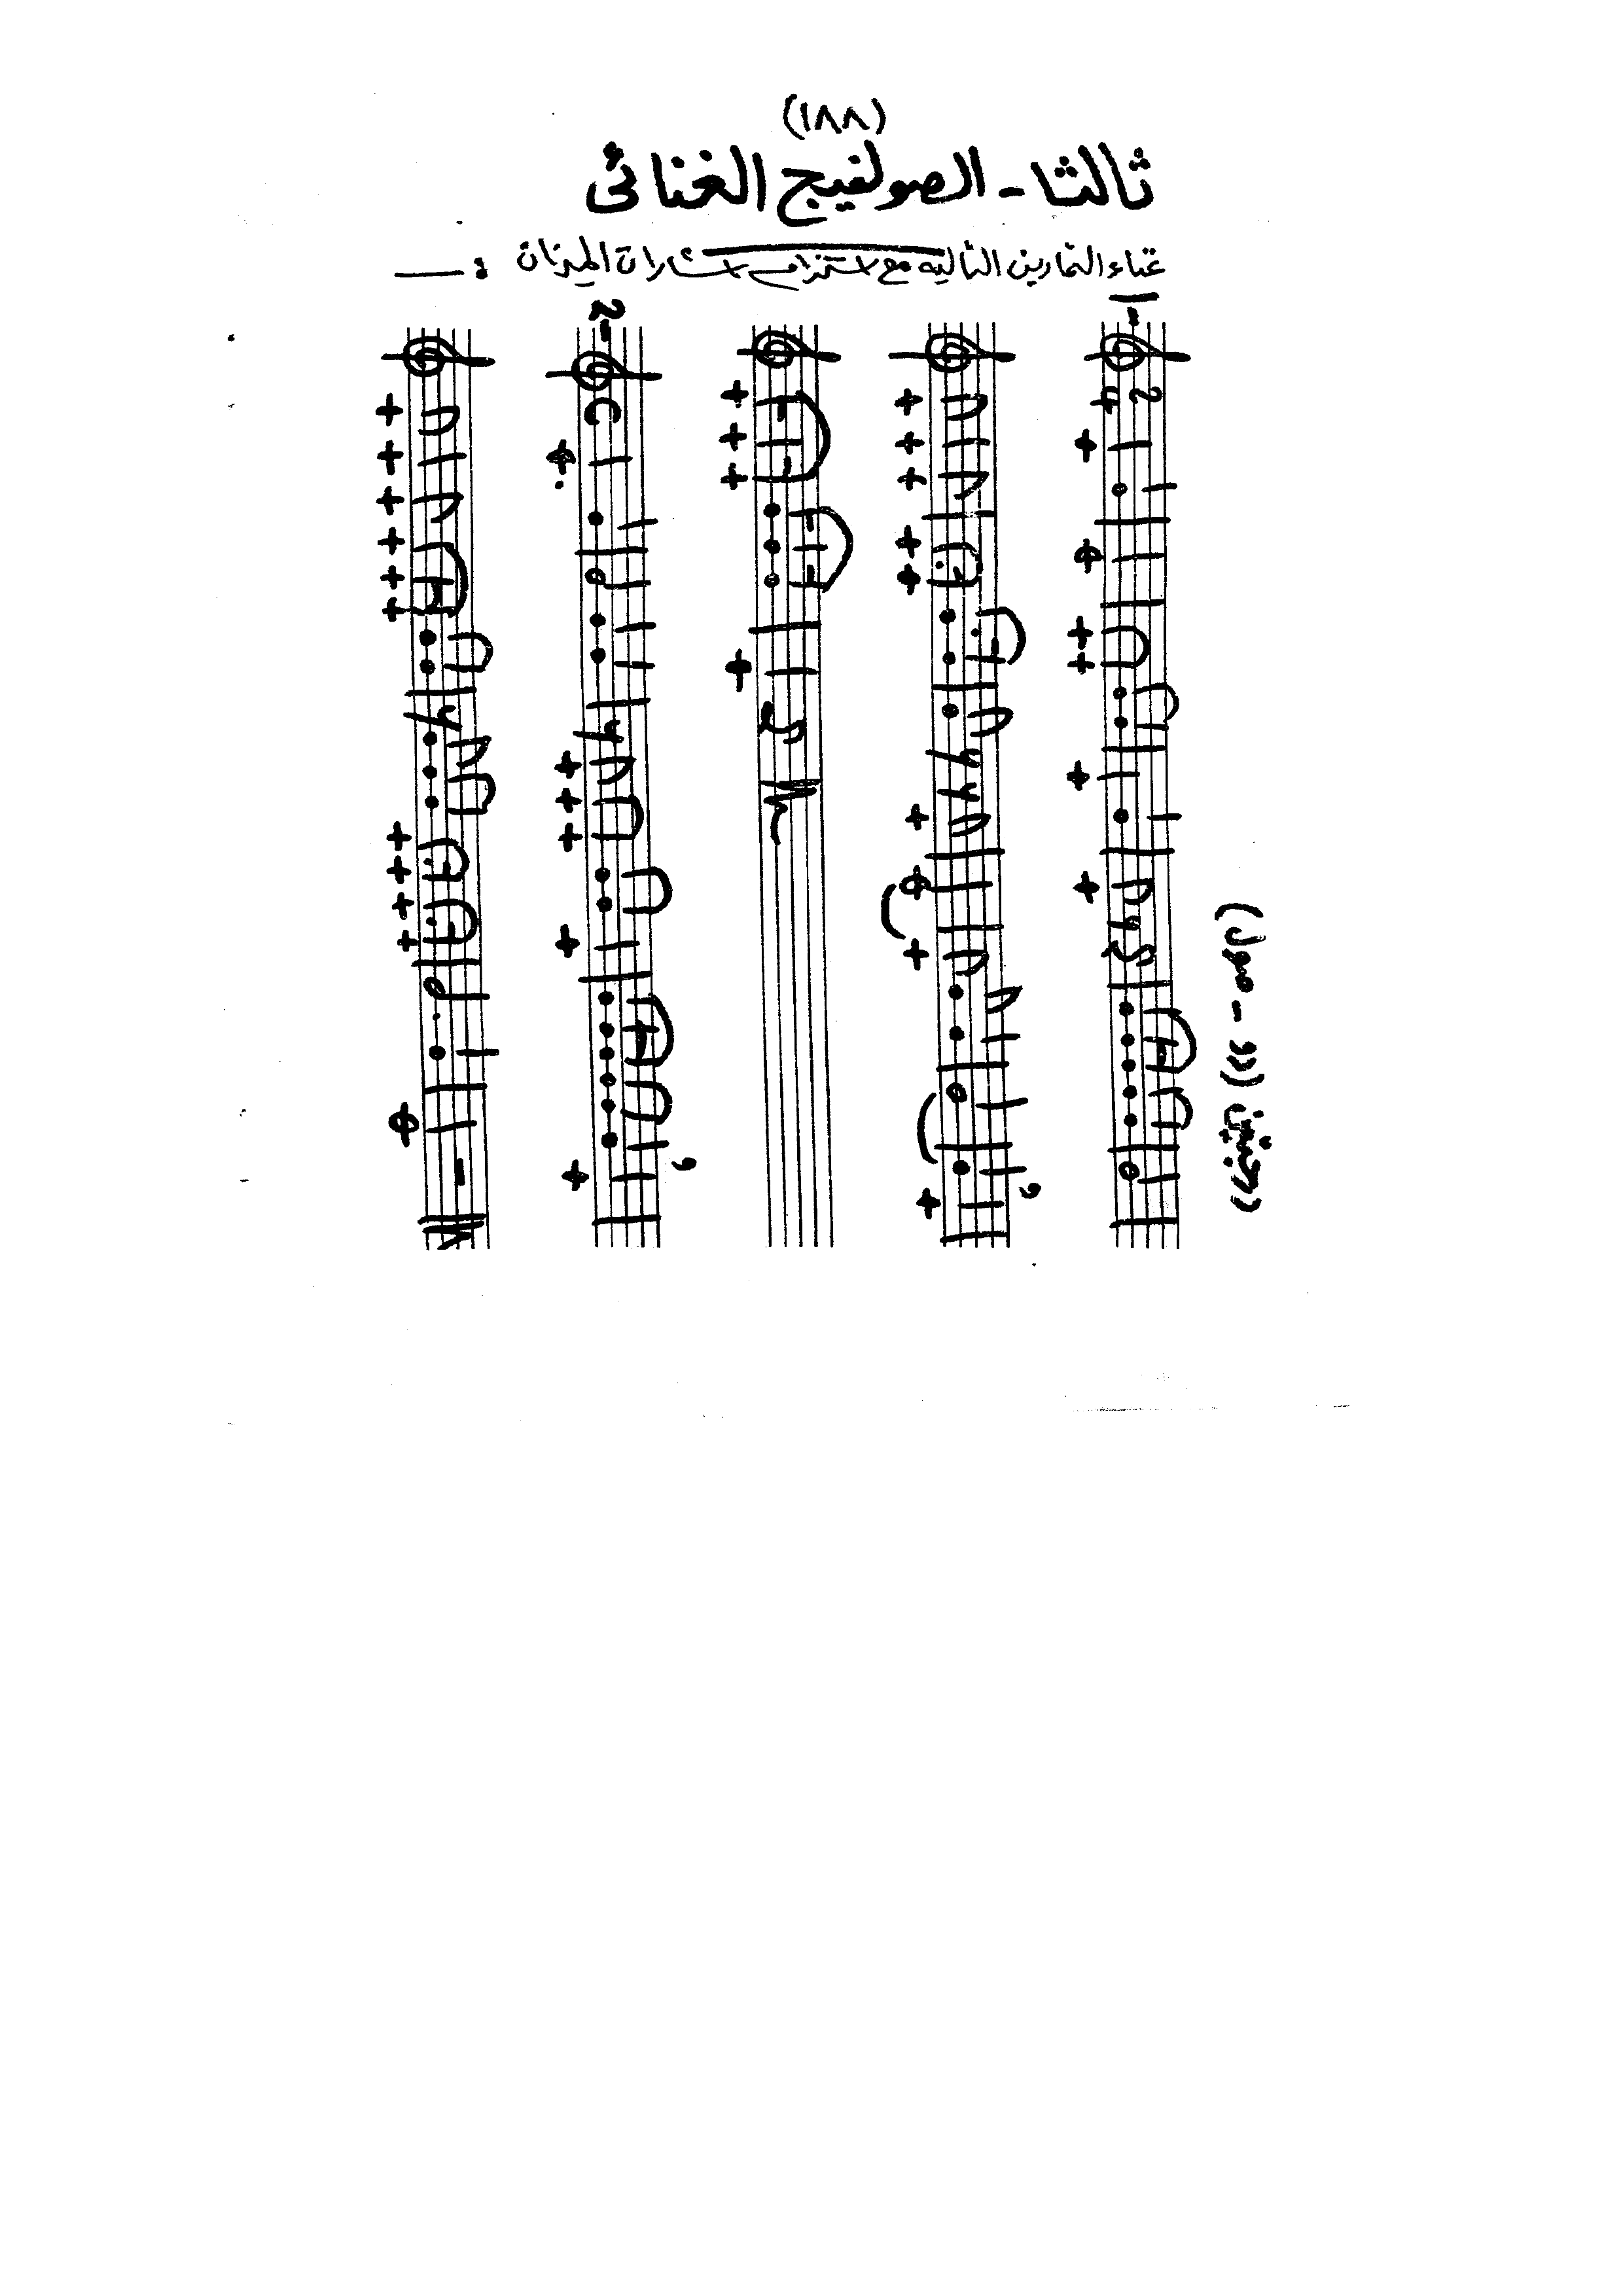 (١٨٨)
ثالثا - الصولفيج الغنائى
غناء التمارين التاليه مع استخدام اشارات الميزان :
١-
2 4
درجتين (دو - صول)
2-
C